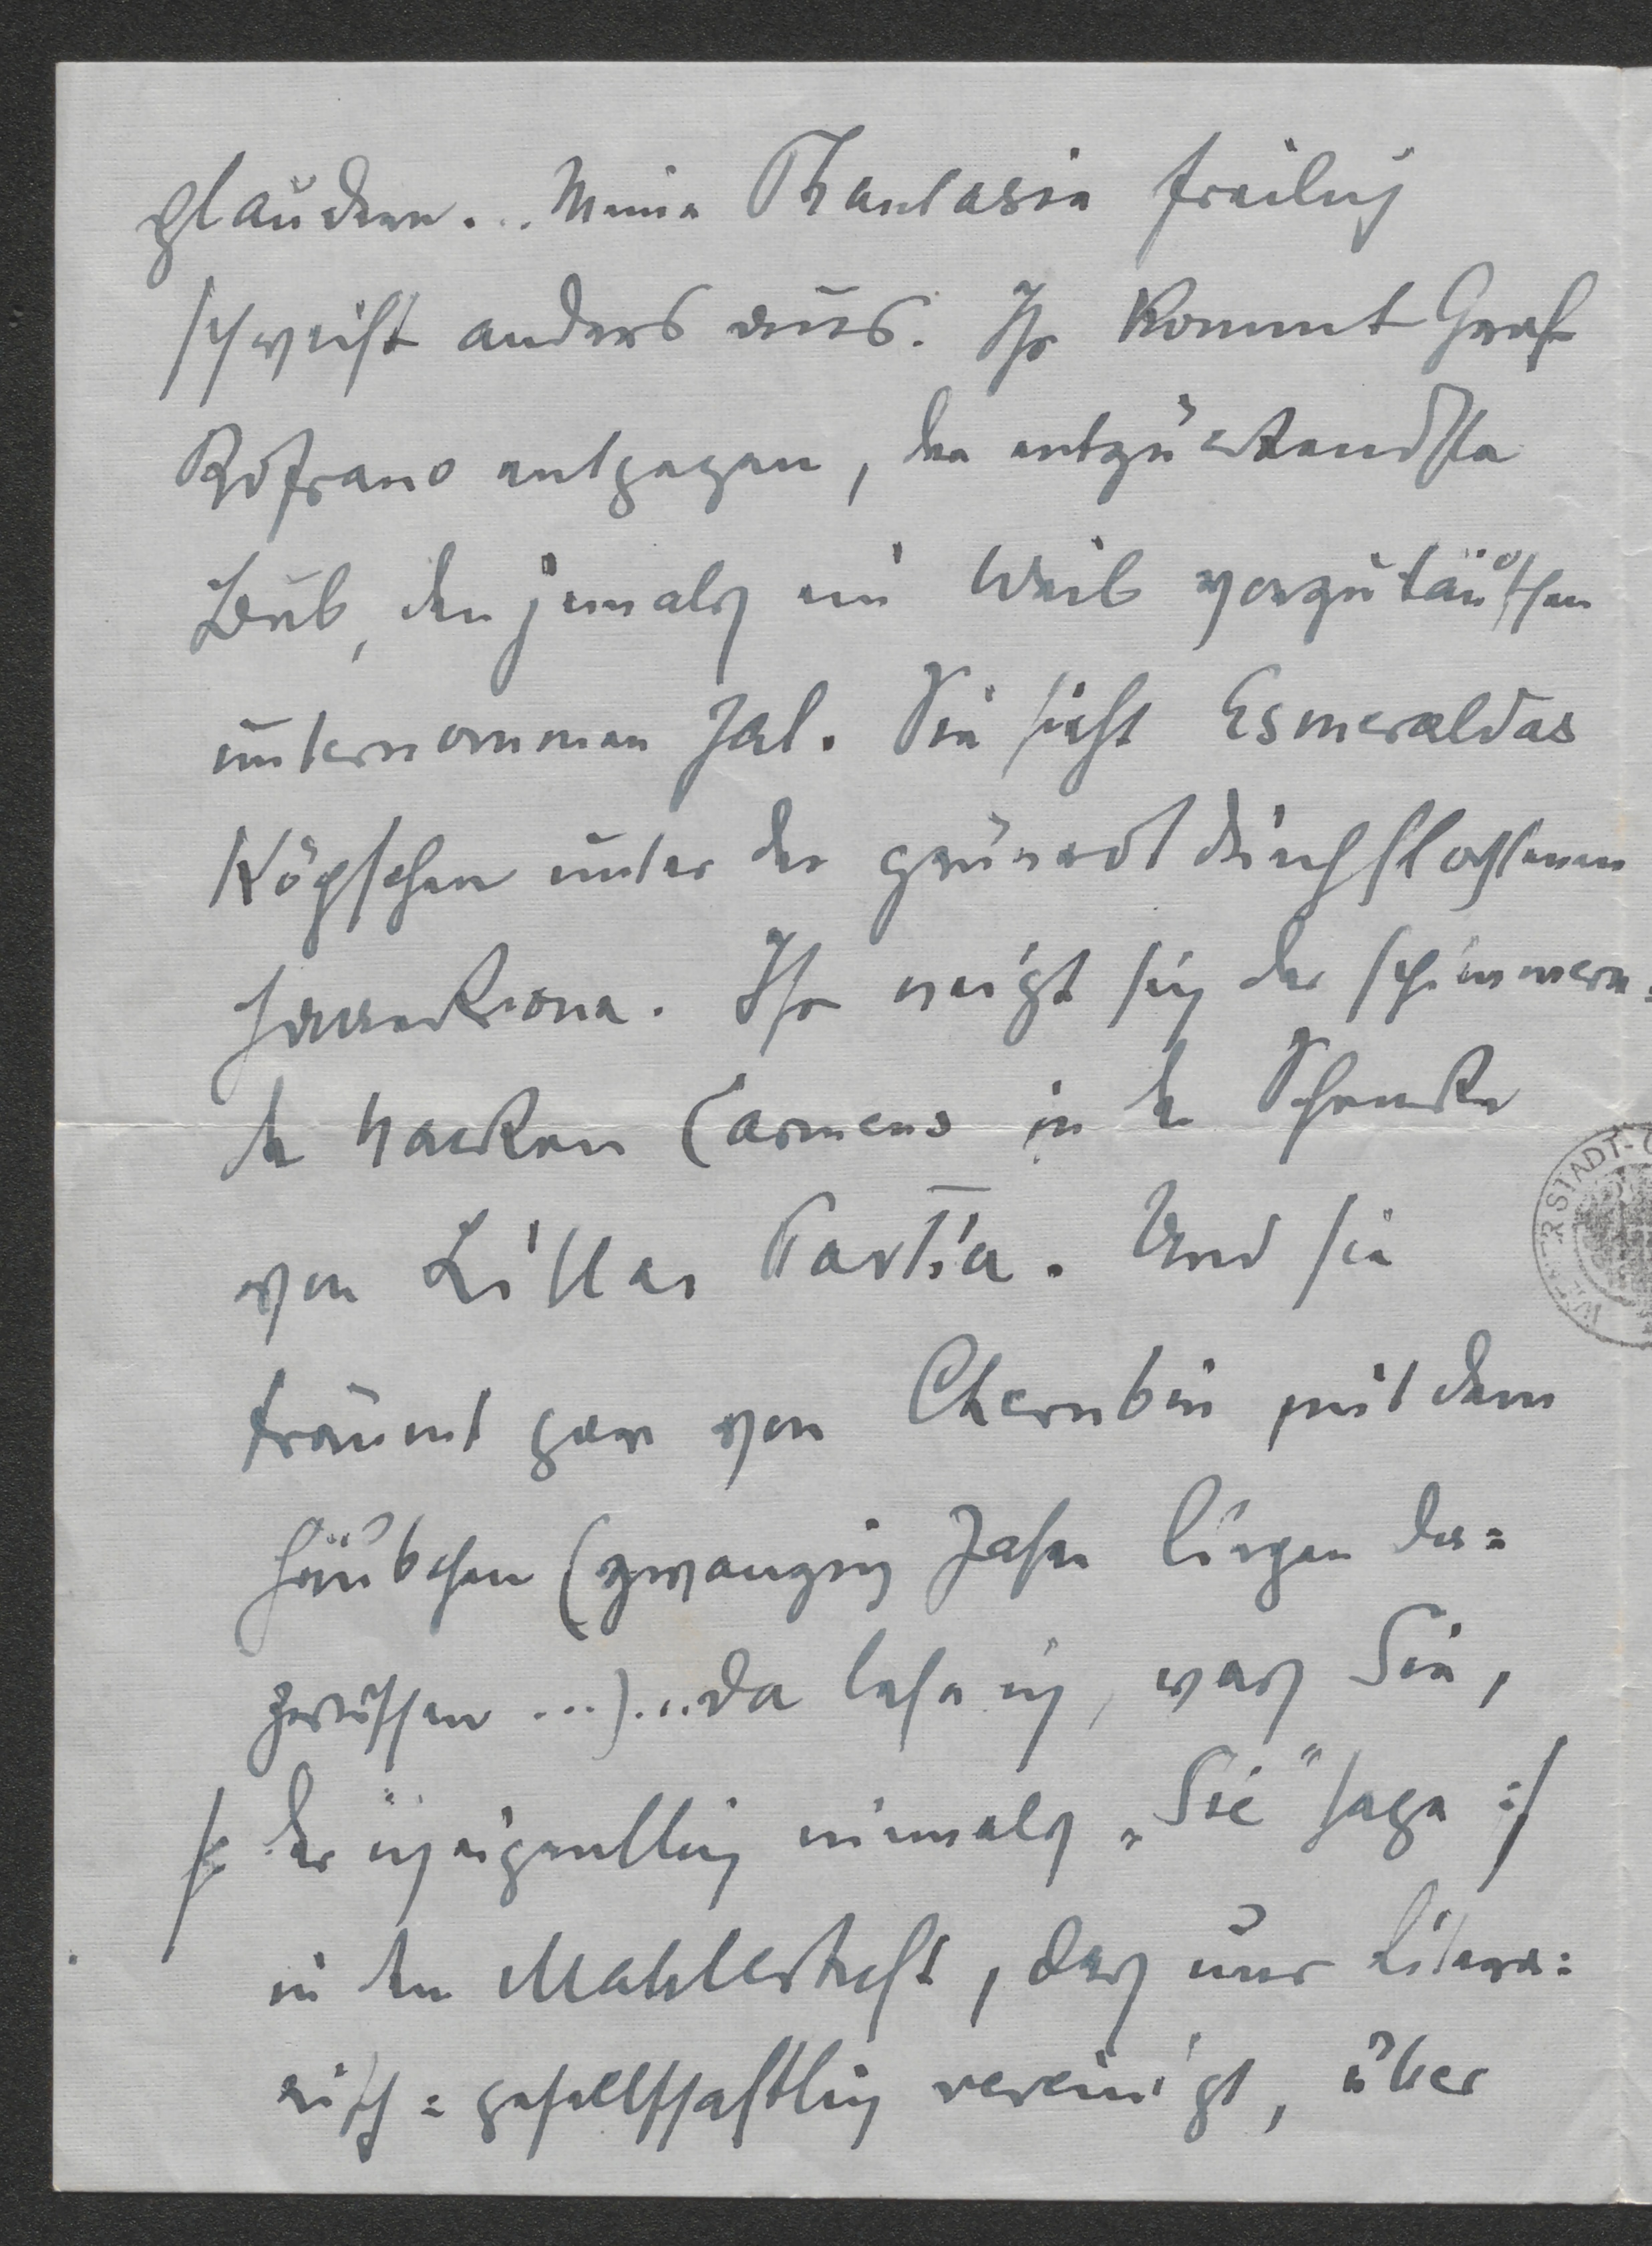 plaudern... Meine Phantasie freilich
schweift anders aus. Ihr kommt Graf
Rofrano entgegen, der entzückendste
Bub, den jemals ein Weib vorzutäuschen
unternommen hat. Sie sieht Esmeraldas
Köpfchen unter der grünrot durchflochtenen
Haarkrone. Ihr neigt sich der schimmern:
de Nacken Carmens in der Schenke
von Lillas Pastia. Und sie
träumt gar von Cherubin mit dem
Häubchen (zwanzig Jahre liegen da=
zwischen ...)... da lese ich, was Sie,
/: der ich eigentlich niemals „Sie" sage :/
in dem Mahlerheft, das uns litera:
risch = gesellschaftlich vereinigt, über
STADT-